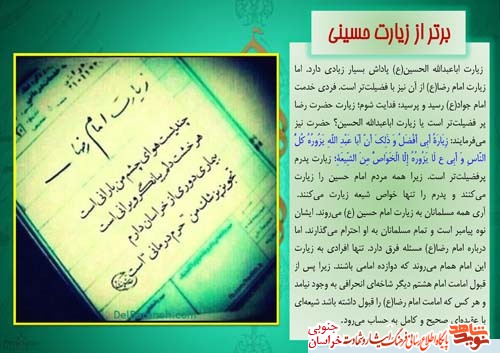 برتر از زیارت حسینی
زیارت اباعبدالله الحسین(ع) پاداش بسیار زیادی دارد. اما
زیارت امام رضا(ع) از آن نیز با فضیلت‌تر است. فردی خدمت
امام جواد(ع) رسید و پرسید؛ فدایت شوم؛ زیارت حضرت رضا
پر فضیلت‌تر است یا زیارت اباعبدالله الحسین؟ حضرت نیز
می‌فرمایند: زِیَارَةُ أَبِی أَفْضَلُ وَ ذَلِکَ أَنَّ أَبَا عَبْدِ اللَّهِ یَزُورُهُ کُلُّ
النَّاسِ وَ أَبِی ع لَا یَزُورُهُ إِلَّا الْخَوَاصُّ مِنَ الشِّیعَةِ؛ زیارت پدرم
پرفضیلت‌تر است. زیرا همه مردم امام حسین را زیارت
می‌کنند و پدرم را تنها خواص شیعه زیارت می‌کنند.
آری همه مسلمانان به زیارت امام حسین (ع) می‌روند. ایشان
نوه پیامبر است و تمام مسلمانان به او احترام می‌گذارند. اما
درباره امام رضا(ع) مسئله فرق دارد. تنها افرادی به زیارت
این امام همام می‌روند که دوازده امامی باشند. زیرا پس از
قبول امامت امام هشتم دیگر شاخه‌ای انحرافی به وجود نیامد
و هر کس که امامت امام رضا(ع) را قبول داشته باشد شیعه‌ای
با عقیده‌ای صحیح و کامل به حساب می‌رود.
زیارت امام رضا
چند لیست هوای چشم من بارانی است
هر خشت دلم یادگر ویرانی است
بیماری دوری از خراسان دارم
تجویز پزشک من "حرم درمانی" است
DelBaraneh.com
نوید شاهد
پایگاه اطلاع رسانی فرهنگ ایثار و شهادت
خراسان جنوبی